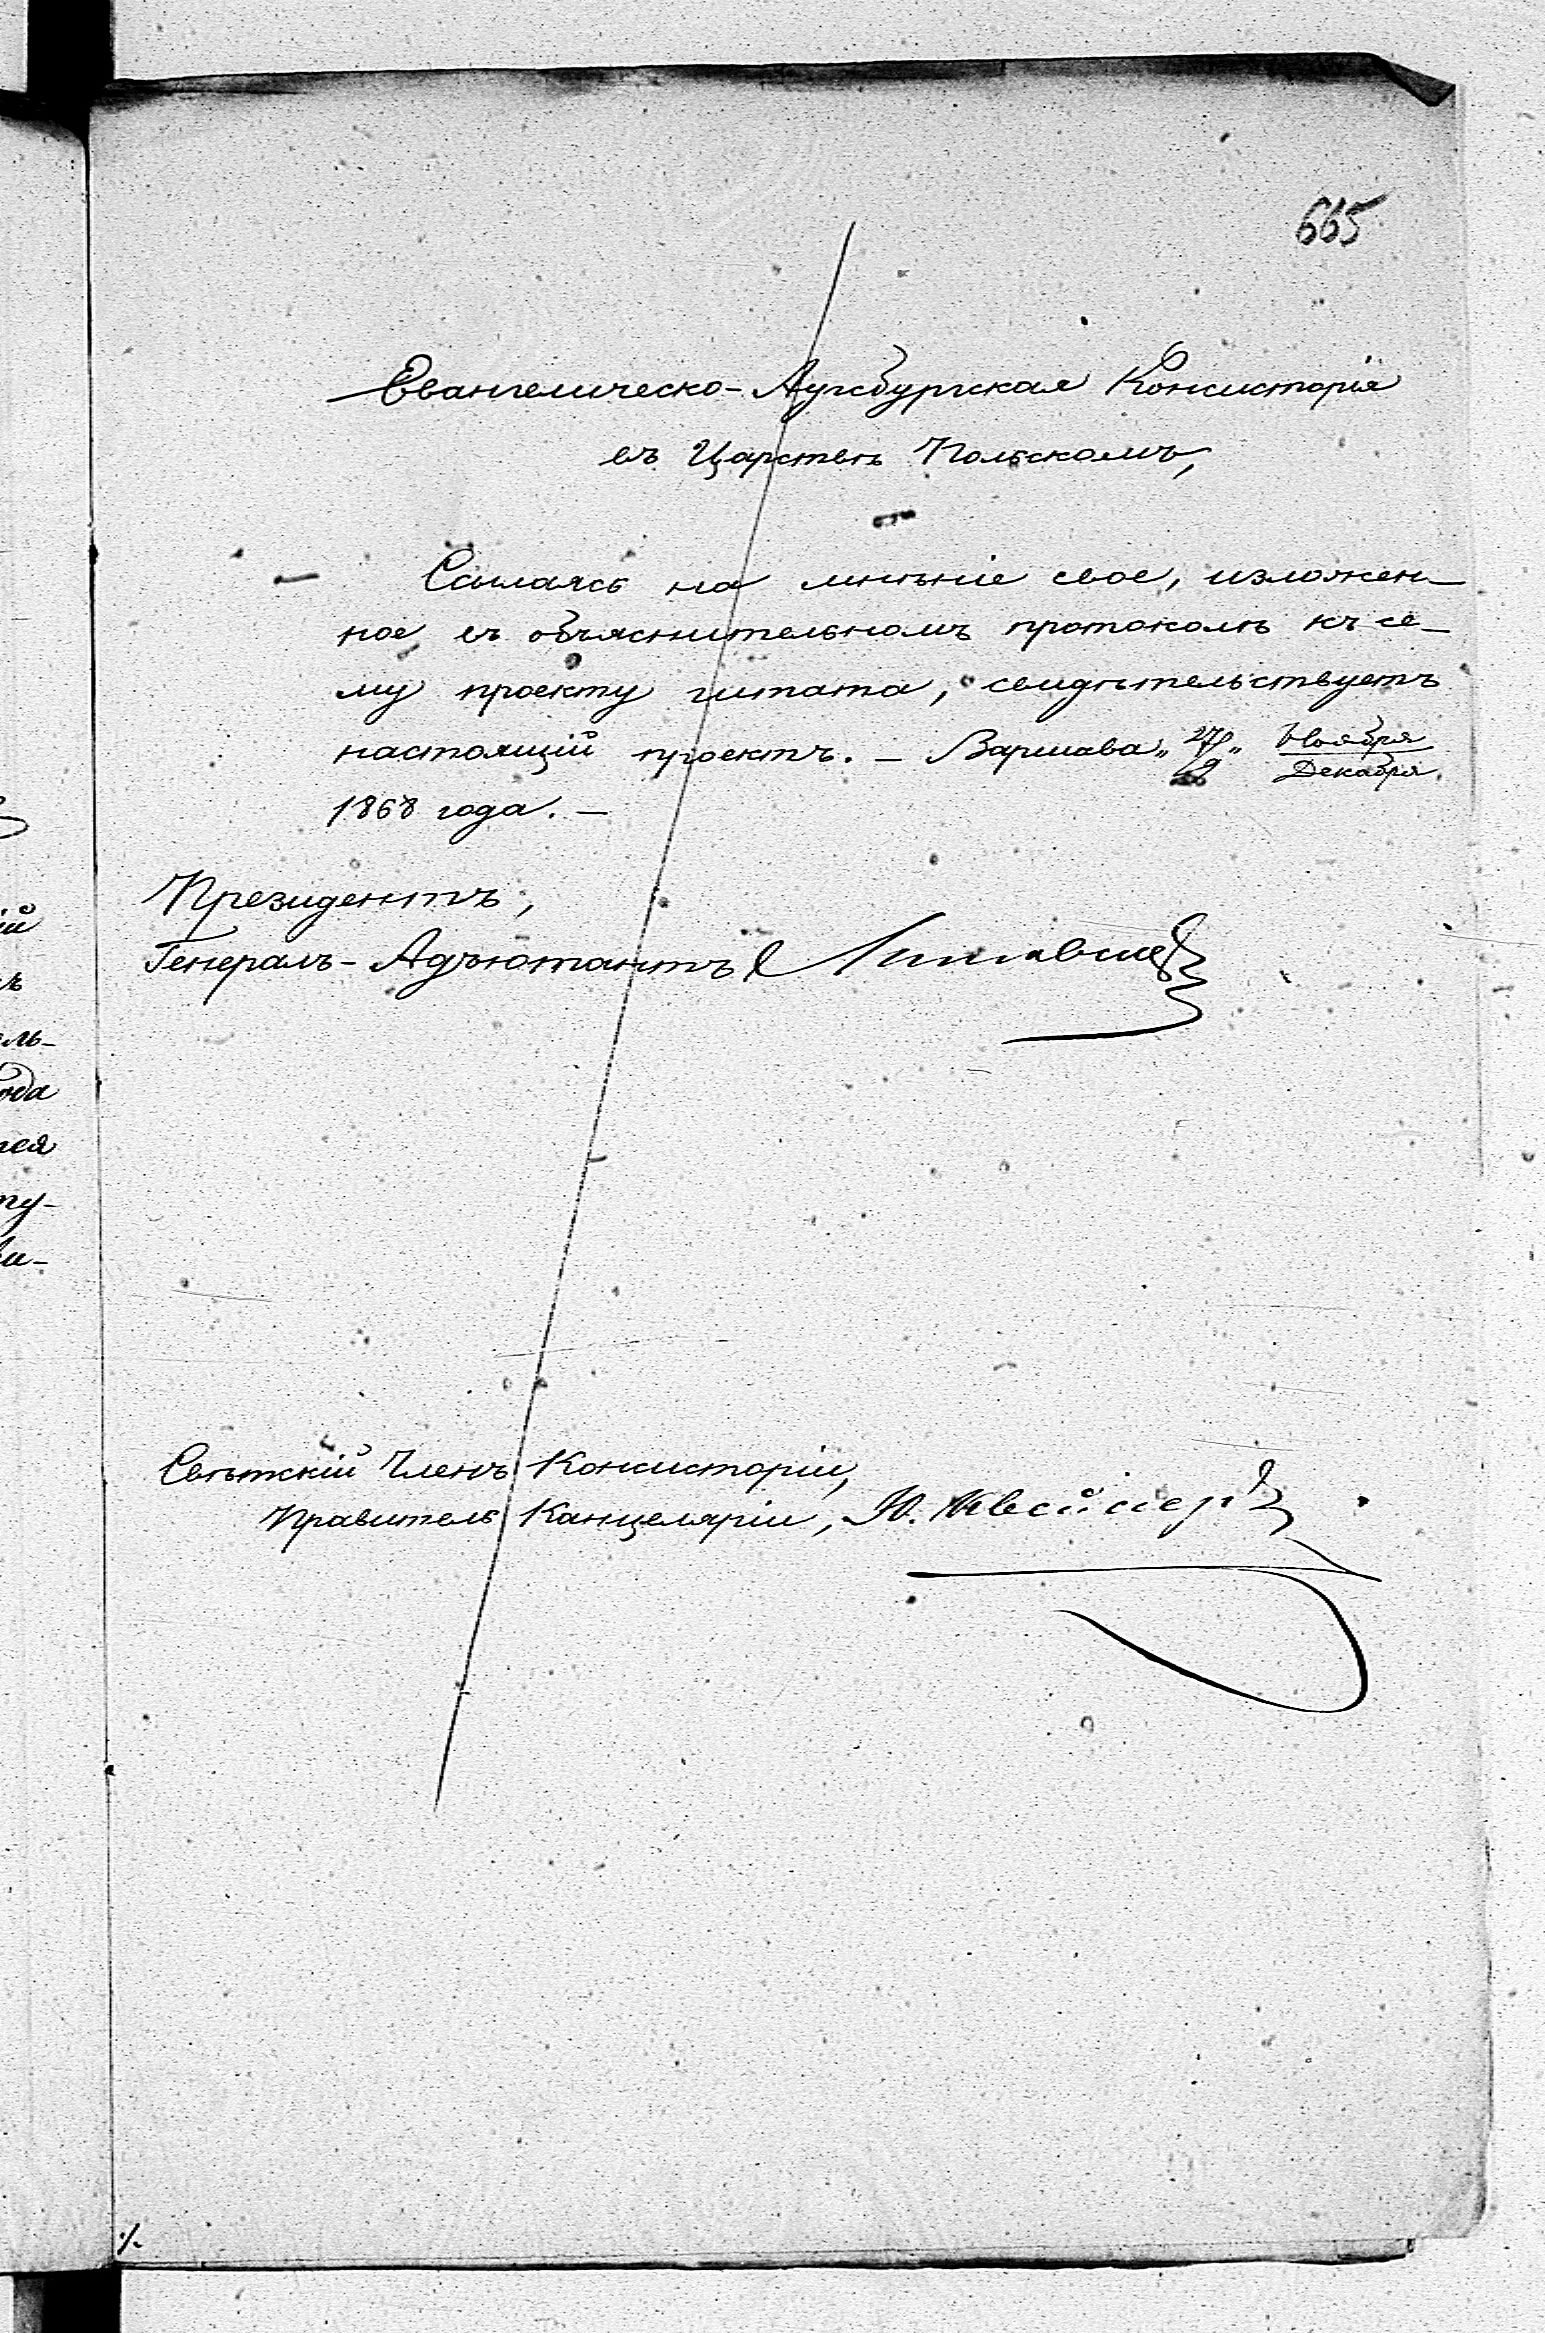 665
Евангелическо-Аугсбургская Консисторія
въ Царствѣ Польскомъ,
Ссылаясь на мнѣніе свое, изложен-
ное въ объяснительномъ протоколѣ къ се-
му проекту штата, свидѣтельствуетъ
настоящій проектъ. – Варшава „27/9“ Ноября/Декабря
1868 года. –
Президентъ,
Генералъ-Адъютантъ
Свѣтскій Членъ Консисторіи,
Правитель Канцеляріи, Ю.